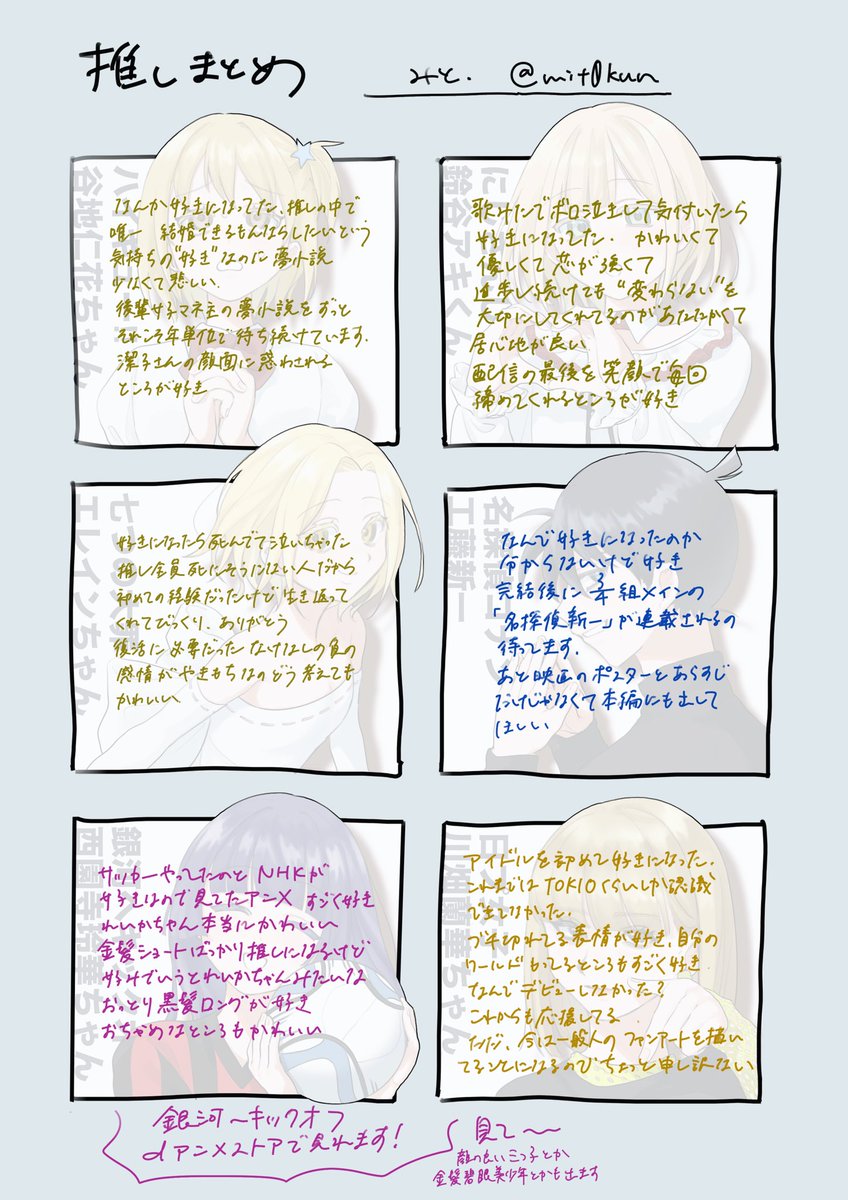 推しまとめ
みと. @mit0kun
谷地仁花ちゃん
なんか好きになってた、推しの中で
唯一 結婚できるもんならしたいという
気持ちの"好き"なのに夢小説
少なくて悲しい.
後輩女子マネ主の夢小説をずっと
それこそ年単位で待ち続けています.
潔子さんの顔面に惑わされる
ところが好き
鈴谷アキくん
歌みたでボロ泣きして気付いたら
好きになってた. かわいくて
優しくて芯が強くて
進歩し続けても"変わらない"を
大切にしてくれてるのがあたたかくて
居心地が良い
配信の最後を笑顔で毎回
締めてくれるところが好き
エレインちゃん
好きになったら死んでて泣いちゃった
推し全員死にそうにない人だから
初めての経験だったけど生き返って
くれてびっくり、ありがとう
復活に必要だったなけなしの負の
感情がやきもちなのどう考えても
かわいい
名探偵コナン
工藤新一
なんで好きになったのか
分からないけど好き
完結後に高校生組メインの
「名探偵新一」が連載されるの
待ってます.
あと映画のポスターとあらすじ
だけじゃなくて本編にも出して
ほしい
西園寺玲華ちゃん
サッカーやってたのとNHKが
好きなので見てたアニメ すごく好き
れいかちゃん本当にかわいい
金髪ショートばっかり推しになるけど
好みでいうとれいかちゃんみたいな
おっとり黒髪ロングが好き
おちゃめなところもかわいい
小畑蘭華ちゃん
アイドルを初めて好きになった.
これまではTOKIOくらいしか認識
できてなかった.
ブチ切れてる表情が好き、自分の
ワールドもってるところもすごく好き
なんでデビューしなかった?
これからも応援してる
ただ、今は一般人のファンアートを描い
てることになるのでちょっと申し訳ない
銀河〜キックオフ
dアニメストアで見れます!
見て〜〜
顔の良い三つ子とか
金髪碧眼美少年とかも出ます